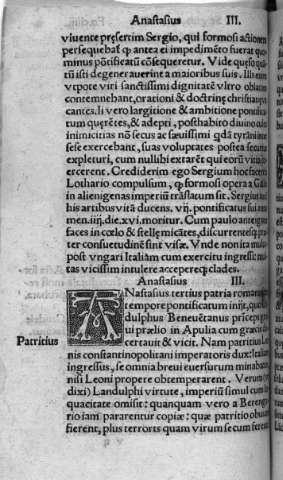 Anastasius III.
viuente presertim Sergio, qui formosi actionem
persequebaꝶ ꝙ antea ei impedimẽto fuerat quo
minus põtificatũ cõsequeretur. Vide queso quã
tũ isti degenerauerint a maioribus suis. Illi enim
vtpote viri sanctissimi dignitatẽ vltro oblatam
contemnebant, orationi & doctrinę christianę va
cantes. Ii vero largitione & ambitione pontifica
tum querẽtes, & adepti, posthabito diuino cultu
inimicitias nõ secus ac sęuissimi qdã tyrãni inter
sese exercebant, suas voluptates postea securius
expleturi, cum nullibi extarẽt qui eorũ vitia co
ercerent. Crediderim ego Sergium hoc fecisse
Lothario compulsum, ꝙ formosi opera a Gallis
in alienigenas imperiũ trãslatum sit. Sergius aũt
his artibus vitã ducens. vij. pontificatus sui anno
men. iiij. die. xvi. moritur. Cum paulo ante ignitę
faces in cœlo & stellę micãtes, discurrentesq; pręter
consuetudinẽ sint visæ. Vnde non ita multo
post vngari Italiam cum exercitu ingressi mul
tas vicissim intulere accepereq; clades.
Anastasius III.
ANastasius tertius patria romanus
tempore pontificatum inijt, quo
dulphus Beneuẽtanus princeps
ui prælio in Apulia cum græcis de
certauit & vicit. Nam patritius Leo
nis constantinopolitani imperatoris dux: Italiam
ingressus, se omnia breui euersurum minabatur
nisi Leoni propere obtemperarent. Verum (vt
dixi) Landulphi virtute, imperiũ simul cum lo
quacitate omisit: quanquam vero a Berengario
iam pararentur copiæ: quæ patritio obuiam
fierent, plus terroris quam virium se cum ferentes
Patritius